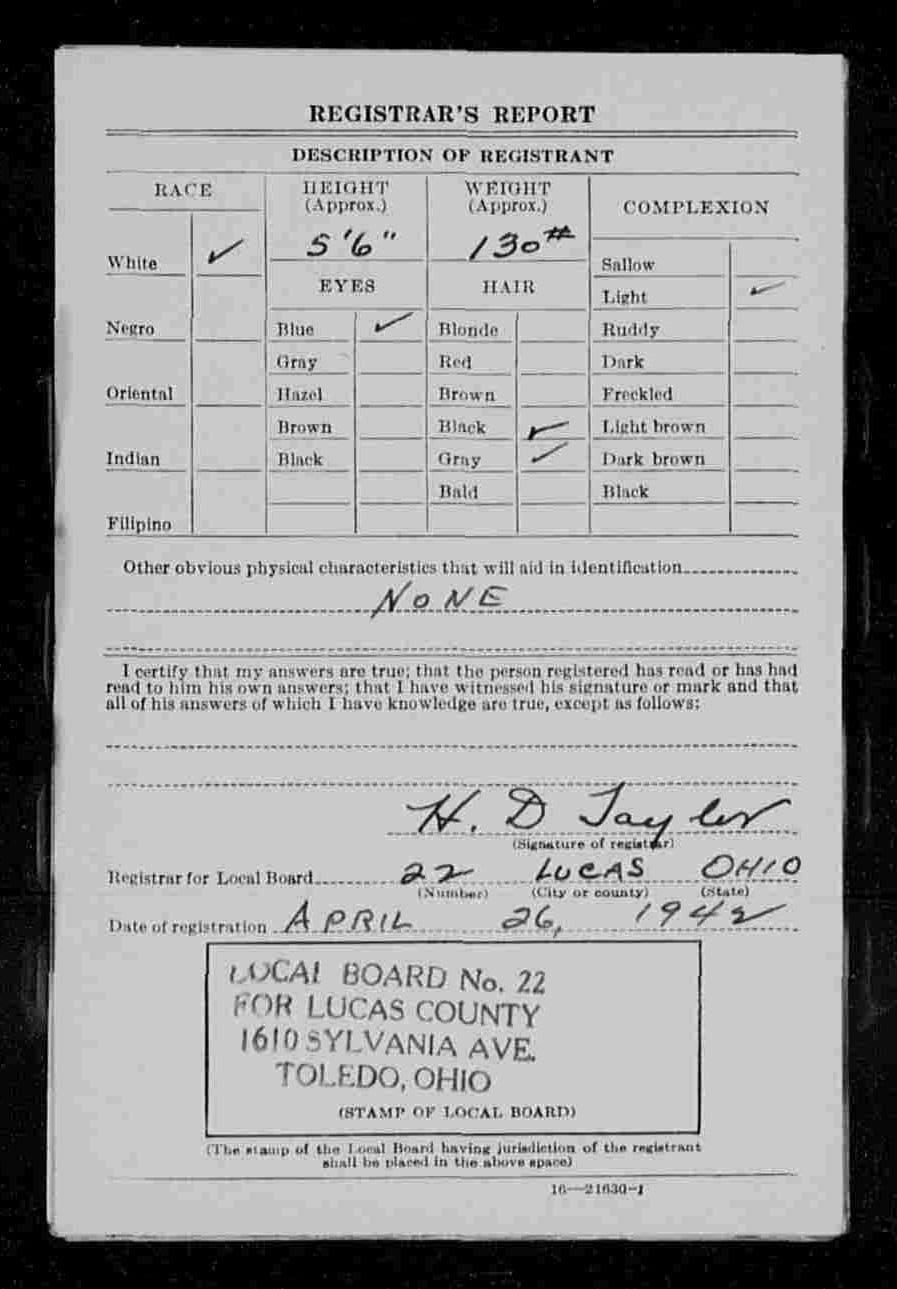 REGISTRAR'S REPORT
DESCRIPTION OF REGISTRANT
RACE HEIGHT (Approx.) WEIGHT (Approx.) COMPLEXION
5'6" 130#
White ✓ Sallow
EYES HAIR Light ✓
Negro Blue ✓ Blonde Ruddy
Gray Red Dark
Oriental Hazel Brown Freckled
Brown Black ✓ Light brown
Indian Black Gray ✓ Dark brown
Bald Black
Filipino
Other obvious physical characteristics that will aid in identification
NONE
I certify that my answers are true; that the person registered has read or has had
read to him his own answers; that I have witnessed his signature or mark and that
all of his answers of which I have knowledge are true, except as follows:
H. D Taylor
(Signature of registrar)
Registrar for Local Board 22 LUCAS OHIO
(Number) (City or county) (State)
Date of registration APRIL 26, 1942
LOCAL BOARD No. 22
FOR LUCAS COUNTY
1610 SYLVANIA AVE.
TOLEDO, OHIO
(STAMP OF LOCAL BOARD)
(The stamp of the Local Board having jurisdiction of the registrant
shall be placed in the above space)
16—21630-1